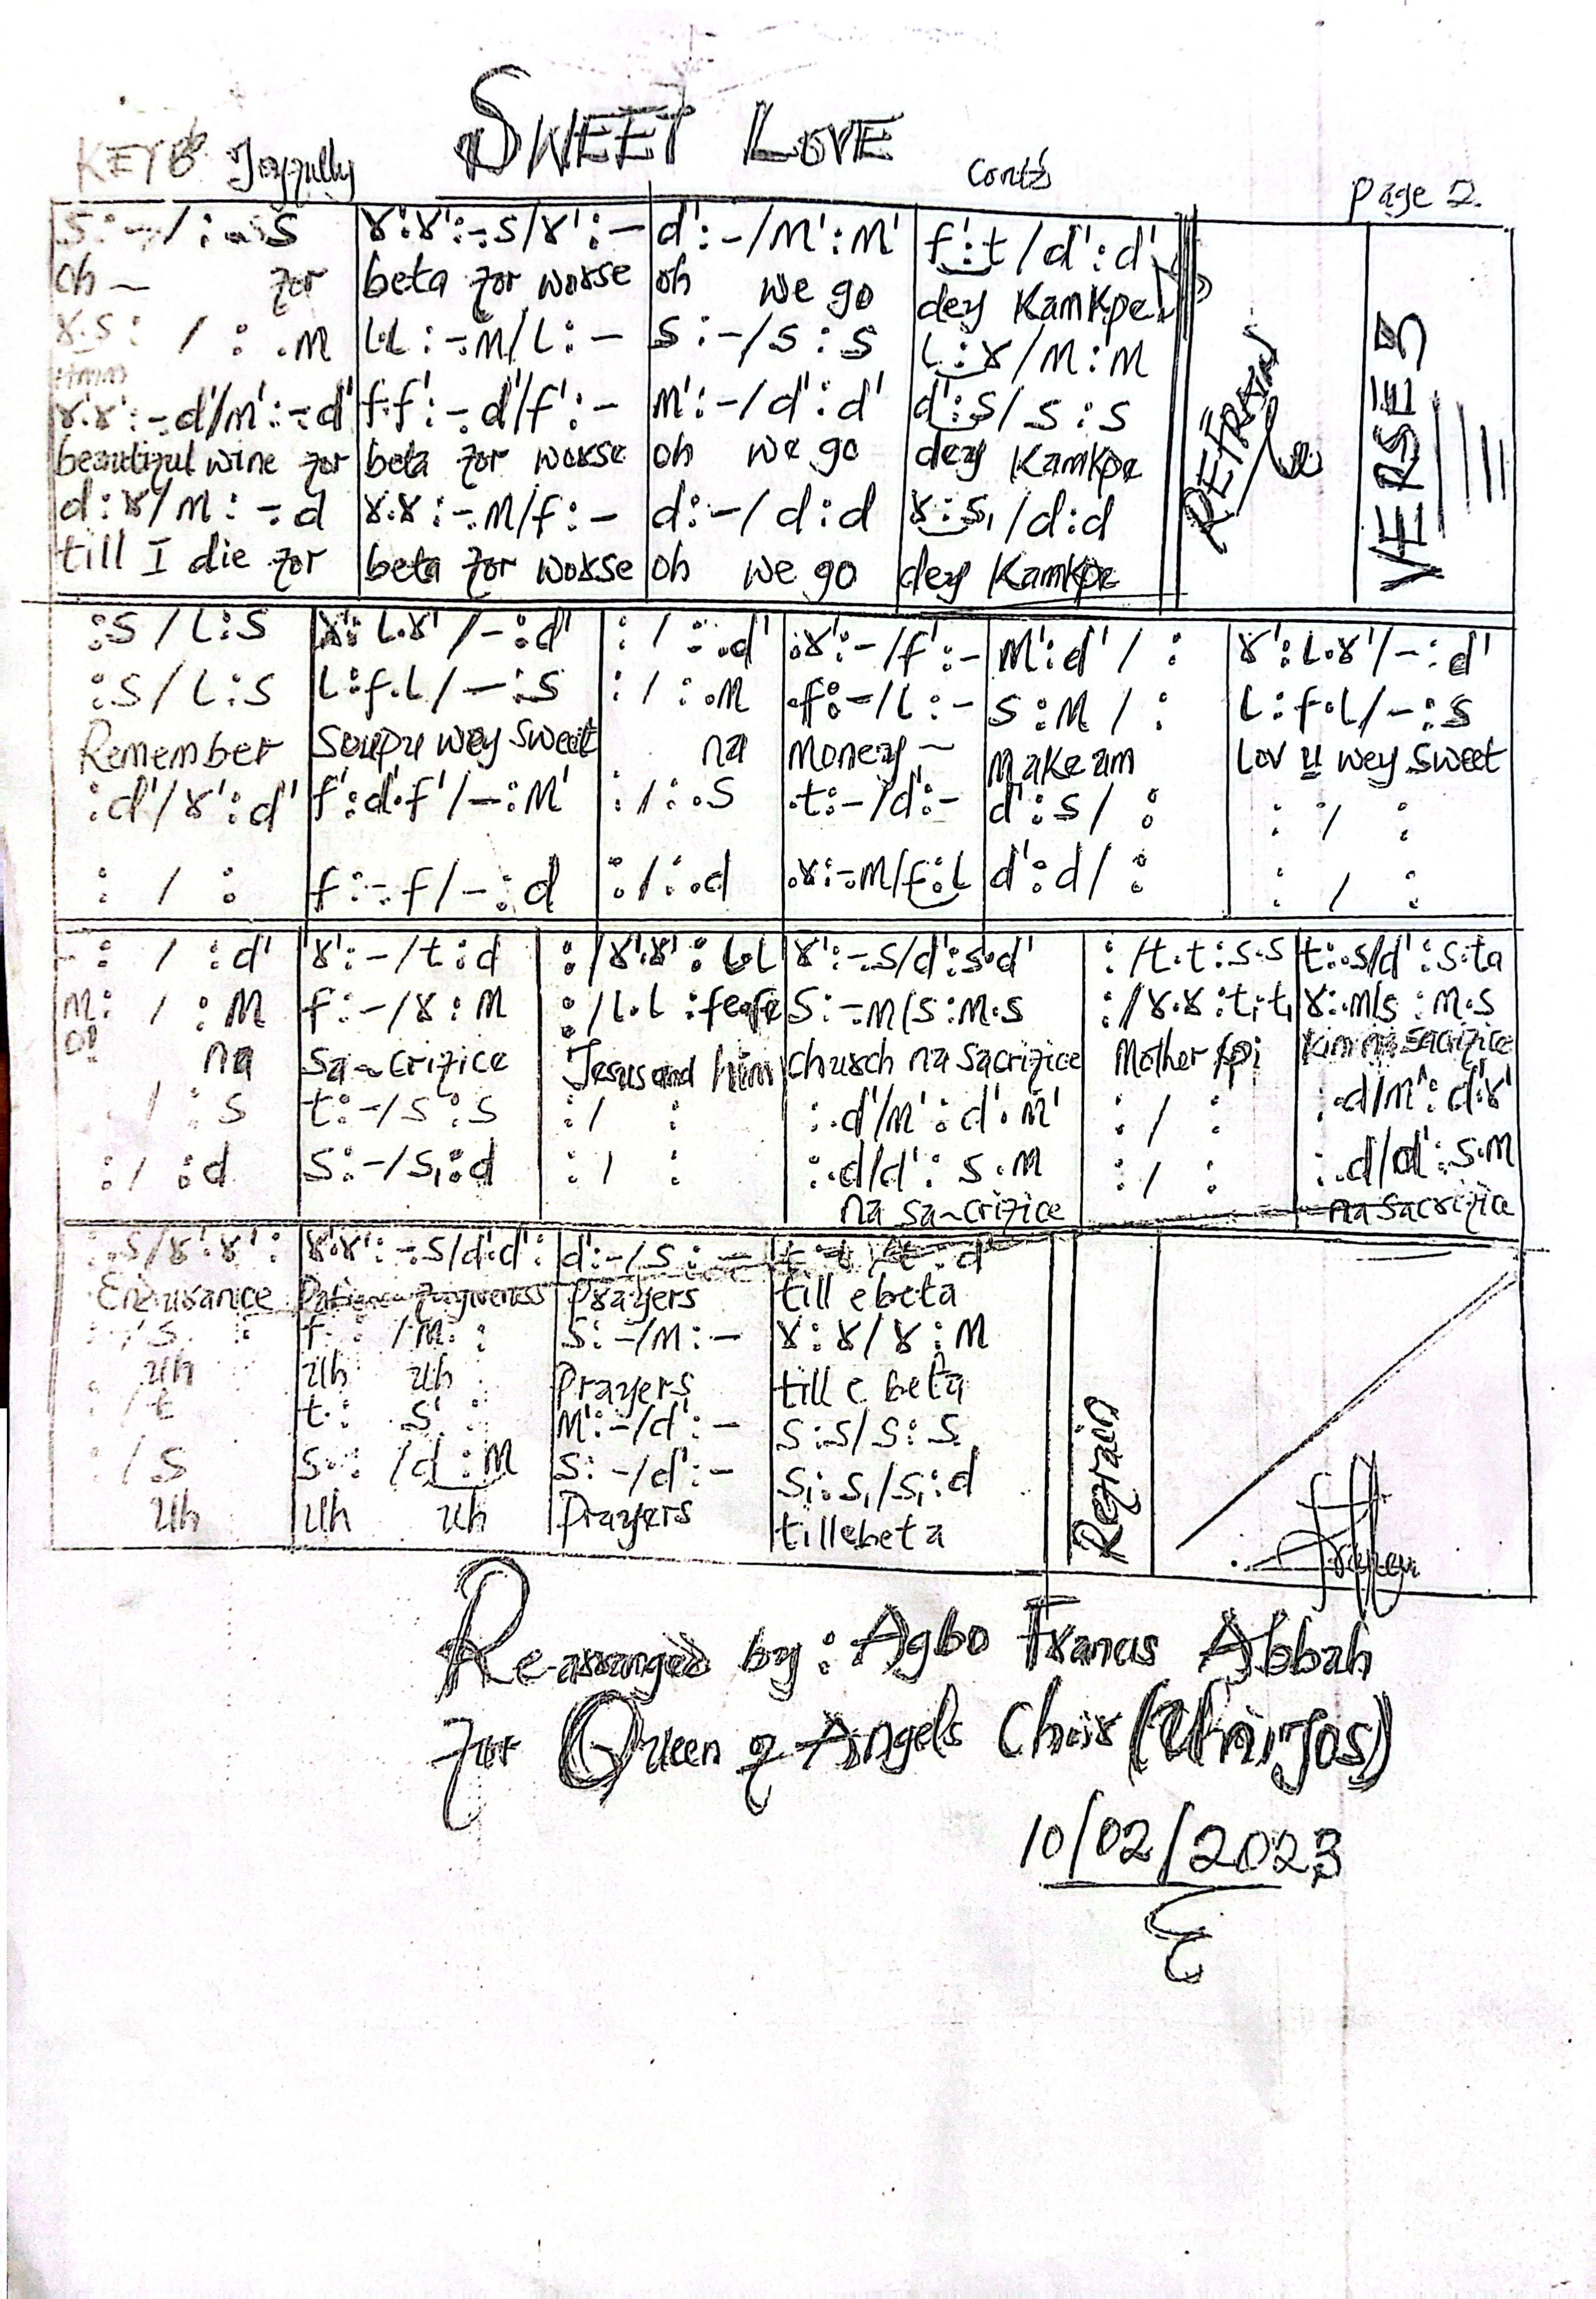 SWEET LOVE
KEY B♭ Joyfully
Cont'd
Page 2.
s:-/:-.s | r'.r':-.s/r':- | d':-/m':m' | f':t/d':d'
oh ~ for | beta for worse | oh we go | dey Kamkpe
r.s: / : .m | l.l:-.m/l:- | s:-/s:s | l:r/m:m
Hmm
r'.r':-.d'/m':-.d' | f'.f':-.d'/f':- | m':-/d':d' | d':s/s:s
beautiful wine for | beta for worse | oh we go | dey Kamkpe
d:r/m:-.d | r.r:-.m/f:- | d:-/d:d | r:s,/d:d
till I die for | beta for worse | oh we go | dey Kamkpe
REFRAIN
VERSE 3
:s/l:s | r':l.r'/-:d' | :/:.d' | .r':-/f':- | m':d'/: | r':l.r'/-:d'
:s/l:s | l:f.l/-:s | :/:.m | .f:-/l:- | s:m/: | l:f.l/-:s
Remember | Soupu wey sweet | na | money ~ | make am | Lov u wey sweet
:d'/r':d' | f':d'.f'/-:m' | :/:.s | .t:-/d':- | d':s/: | :/:
:/: | f:-.f/-:d | :/:.d | .r:-.m/f:l | d':d/: | :/:
-:/:d' | r':-/t:d | :/r'.r':l.l | r':-.s/d':s.d' | :/t.t:s.s | t:.s/d':s.ta
m:/:m | f:-/r:m | :/l.l:fe.fe | s:-.m/s:m.s | :/r.r:t,.t, | r:.m/s:m.s
o! na | sa~crifice | Jesus and him | church na sacrifice | Mother | na sacrifice
/:s | t:-/s:s | :/: | :.d'/m':d'.m' | :/: | :.d/m':d'.r'
:/:d | s:-/s,:d | :/: | :.d/d':s.m | :/: | :.d/d':s.m
na sa~crifice | na sacrifice
:.s/r'.r': | r'.r':-.s/d'.d': | d':-/s:- | d'
Endurance | Patience forgiveness | Prayers | till e beta
:/s: | f:/m: | s:-/m:- | r:r/r:m
uh | uh uh | Prayers | till e beta
:/t | t: s: | m':-/d':- | s:s/s:s
:/s | s:/d:m | s:-/d':- | s,:s,/s,:d
uh | uh uh | Prayers | till e beta
Refrain
Re-arranged by: Agbo Francis Abbah
for Queen of Angels Choir (Unijos)
10/02/2023